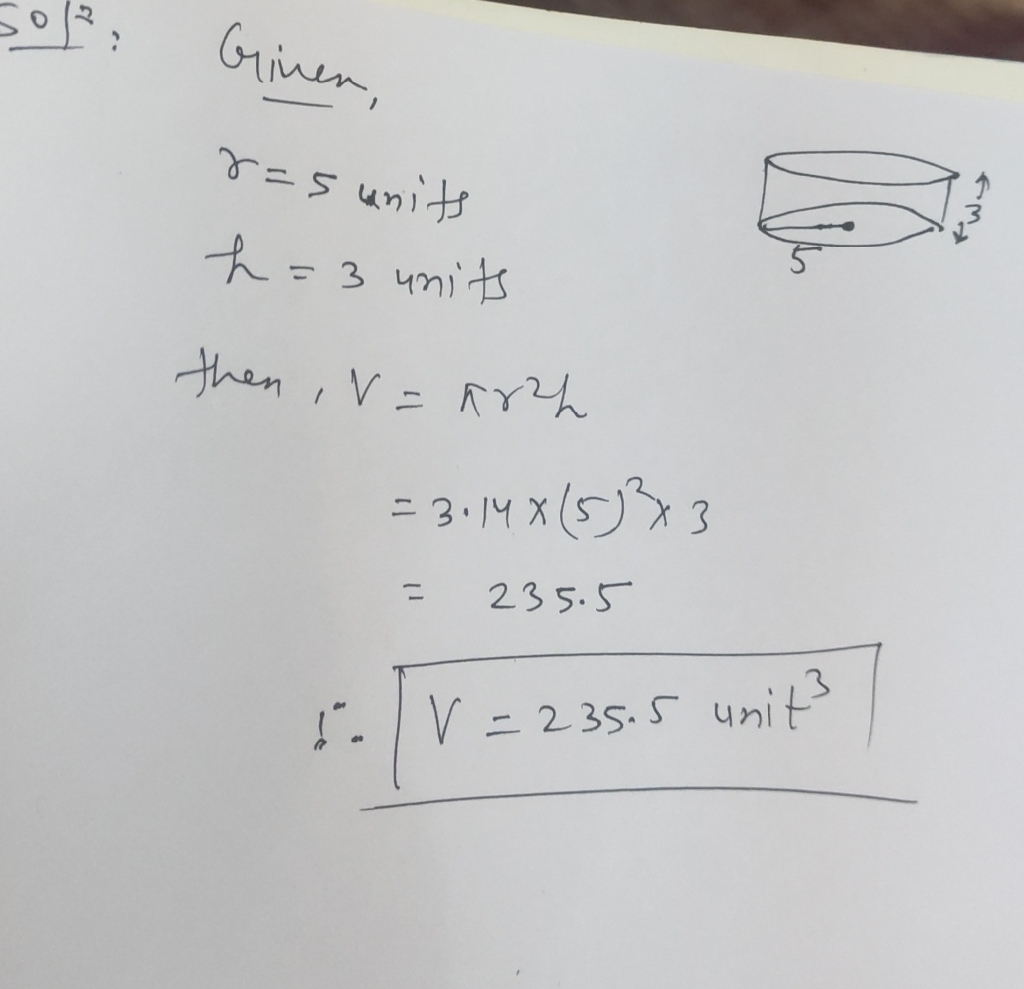 Solⁿ:
Given,
r = 5 units
h = 3 units
3
5
then, V = πr²h
= 3.14 x (5)² x 3
= 235.5
∴ V = 235.5 unit³